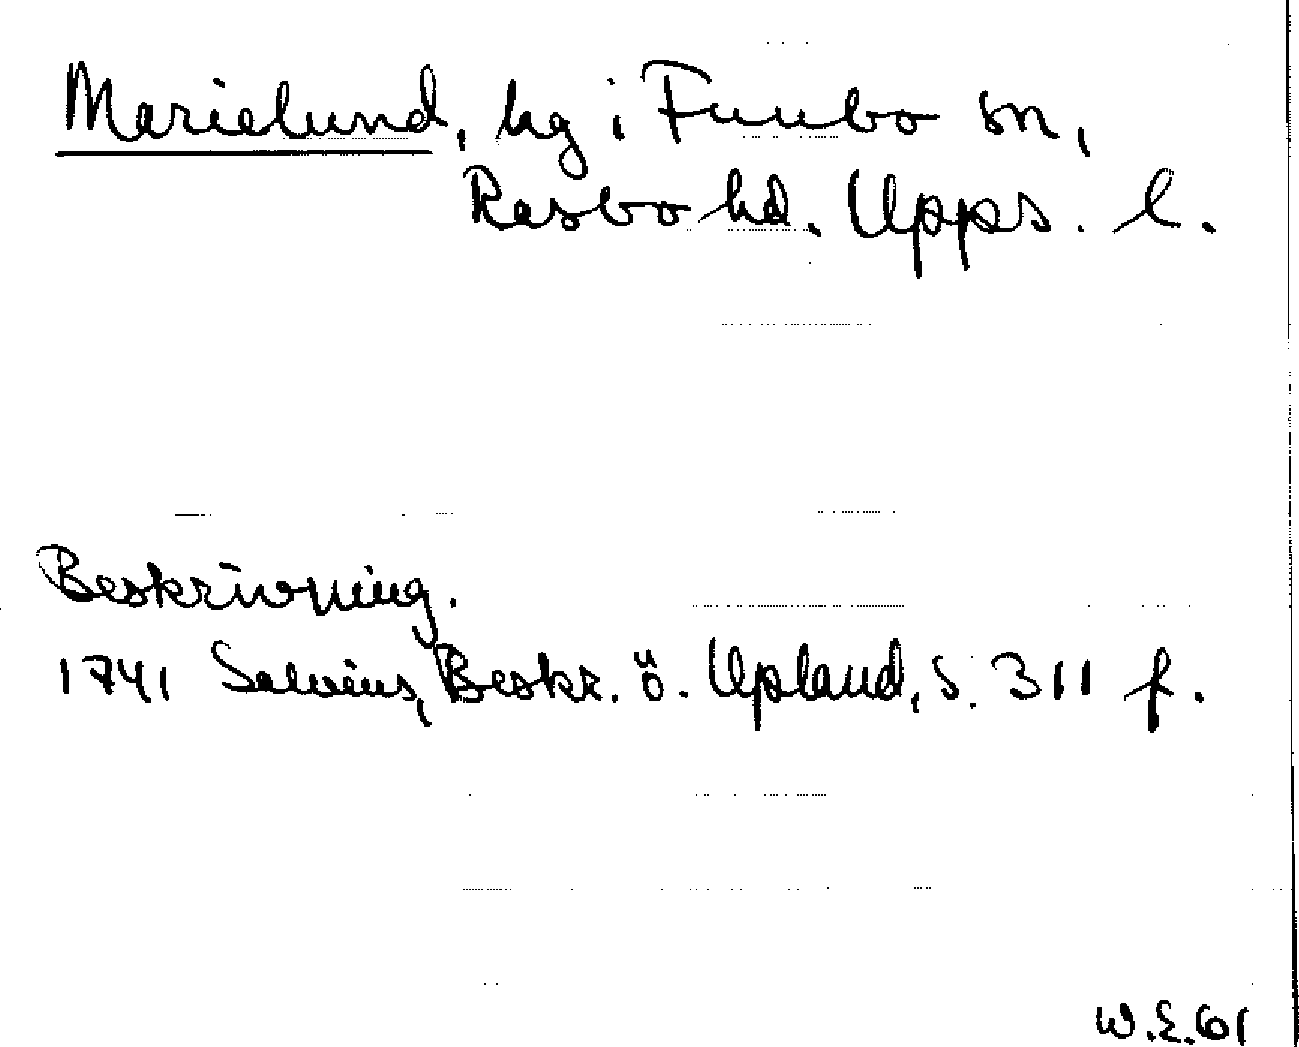 Marielund, hg i Funbo sn,
Rasbo hd. Upps. l.
Beskrivning.
1741 Salvius, Beskr. ö. Upland, S. 311 f.
W.E. 61